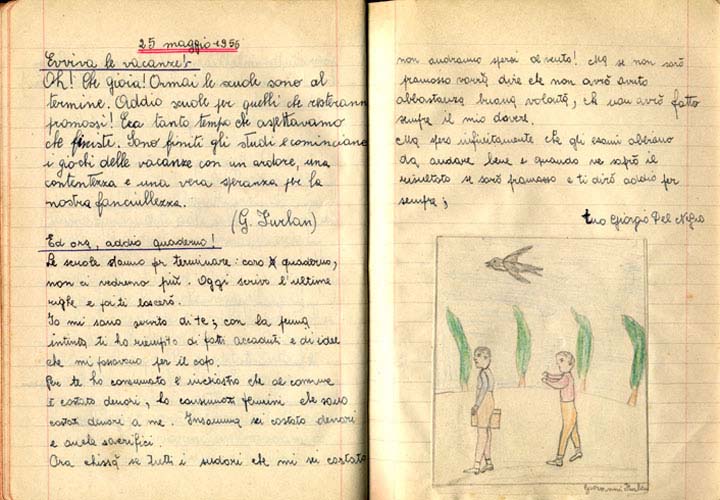 25 maggio 1956
Evviva le vacanze!
Oh! Che gioia! Ormai le scuole sono al
termine. Addio scuole per quelli che resteranno
promossi! Era tanto tempo che aspettavamo
che finiste. Sono finiti gli studi e cominciano
i giochi delle vacanze con un ardore, una
contentezza e una vera speranza per la
nostra fanciullezza.
(G. Furlan)
Ed ora, addio quaderno!
Le scuole stanno per terminare: caro quaderno,
non ci vedremo più. Oggi scrivo l'ultime
righe e poi ti lascerò.
Io mi sono servito di te; con la penna
intinta ti ho riempito di fatti accaduti e di idee
che mi passavano per il capo.
Per te ho consumato l'inchiostro che al comune
è costato denari, ho consumati pennini che sono
costati denari a me. Insomma sei costato denari
e anche sacrifici.
Ora chissà se tutti i sudori che mi sei costato
non andranno spersi al vento! Ma se non sarò
promosso vorrà dire che non avrò avuto
abbastanza buona volontà, che non avrò fatto
sempre il mio dovere.
Ma spero infinitamente che gli esami abbiano
da andare bene e quando ne saprò il
risultato se sarò promosso e ti dirò addio per
sempre;
tuo Giorgio Del Negro
Giovanni Furlan